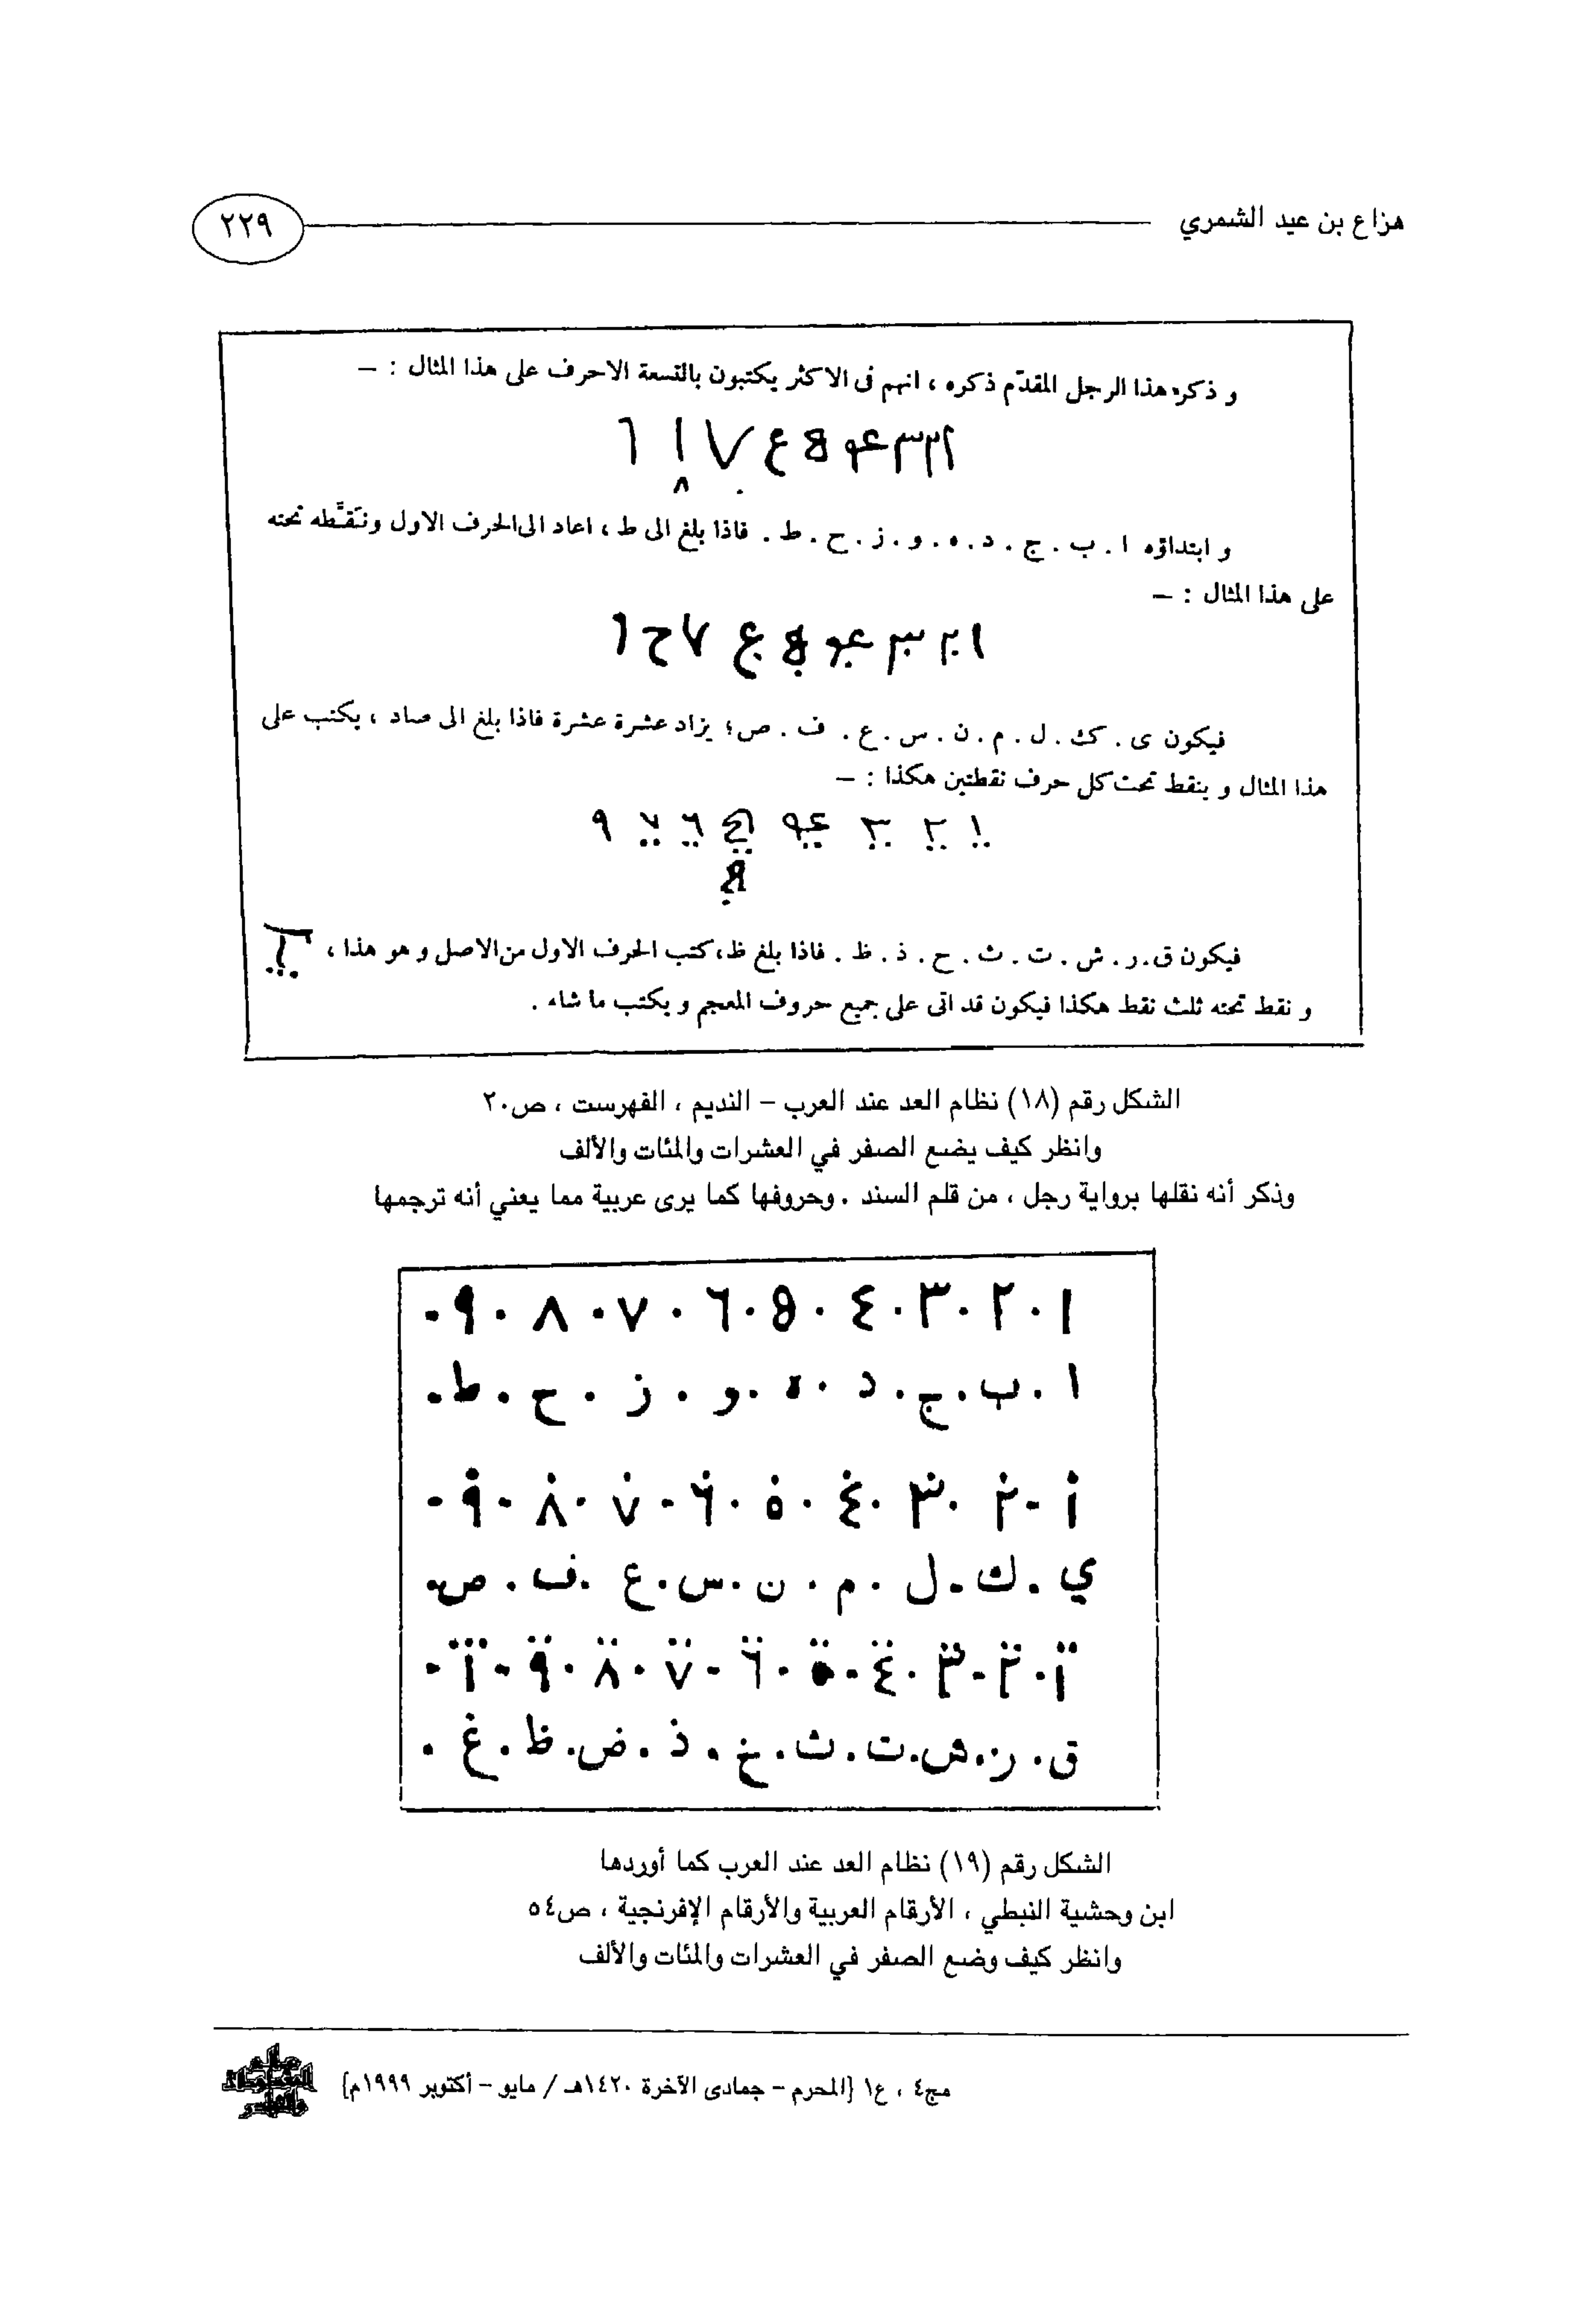 هزاع بن عيد الشمري
٢٢٩
و ذكر هذا الرجل المقدّم ذكره ، انهم فى الاكثر يكتبون بالتسعة الاحرف على هذا المثال : –
و ابتداؤه ا . ب . ج . د . ه . و . ز . ح . ط . فاذا بلغ الى ط ، اعاد الى الحرف الاول ونَقَّطه تحته
على هذا المثال : –
فيكون ى . ك . ل . م . ن . س . ع . ف . ص ؛ يزاد عشرة عشرة فاذا بلغ الى صاد ، يكتب على
هذا المثال و ينقط تحت كل حرف نقطتين هكذا : –
فيكون ق . ر . ش . ت . ث . ح . ذ . ظ . فاذا بلغ ظ ، كتب الحرف الاول من الاصل و هو هذا ،
و نقط تحته ثلث نقط هكذا فيكون قد اتى على جميع حروف المعجم و يكتب ما شاء .
الشكل رقم (١٨) نظام العد عند العرب – النديم ، الفهرست ، ص٢٠
وانظر كيف يضع الصفر في العشرات والمئات والألف
وذكر أنه نقلها برواية رجل ، من قلم السند . وحروفها كما يرى عربية مما يعني أنه ترجمها
١ . ٢ . ٣ . ٤ . 5 . ٦ . ٧ . ٨ . ٩ .
ا . ب . ج . د . ه . و . ز . ح . ط .
ي . ك . ل . م . ن . س . ع . ف . ص .
ق . ر . ش . ت . ث . خ . ذ . ض . ظ . غ .
الشكل رقم (١٩) نظام العد عند العرب كما أوردها
ابن وحشية النبطي ، الأرقام العربية والأرقام الإفرنجية ، ص٥٤
وانظر كيف وضع الصفر في العشرات والمئات والألف
مج٤ ، ع١ {المحرم – جمادى الآخرة ١٤٢٠هـ / مايو – أكتوبر ١٩٩٩م}